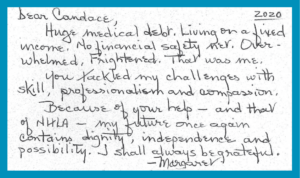 Dear Candace, 2020
Huge medical debt. Living on a fixed
income. No financial safety net. Over-
whelmed, Frightened. That was me.
You tackled my challenges with
skill, professionalism and compassion.
Because of your help – and that
of NHLA – my future once again
contains dignity, independence and
possibility. I shall always be grateful.
–Margaret